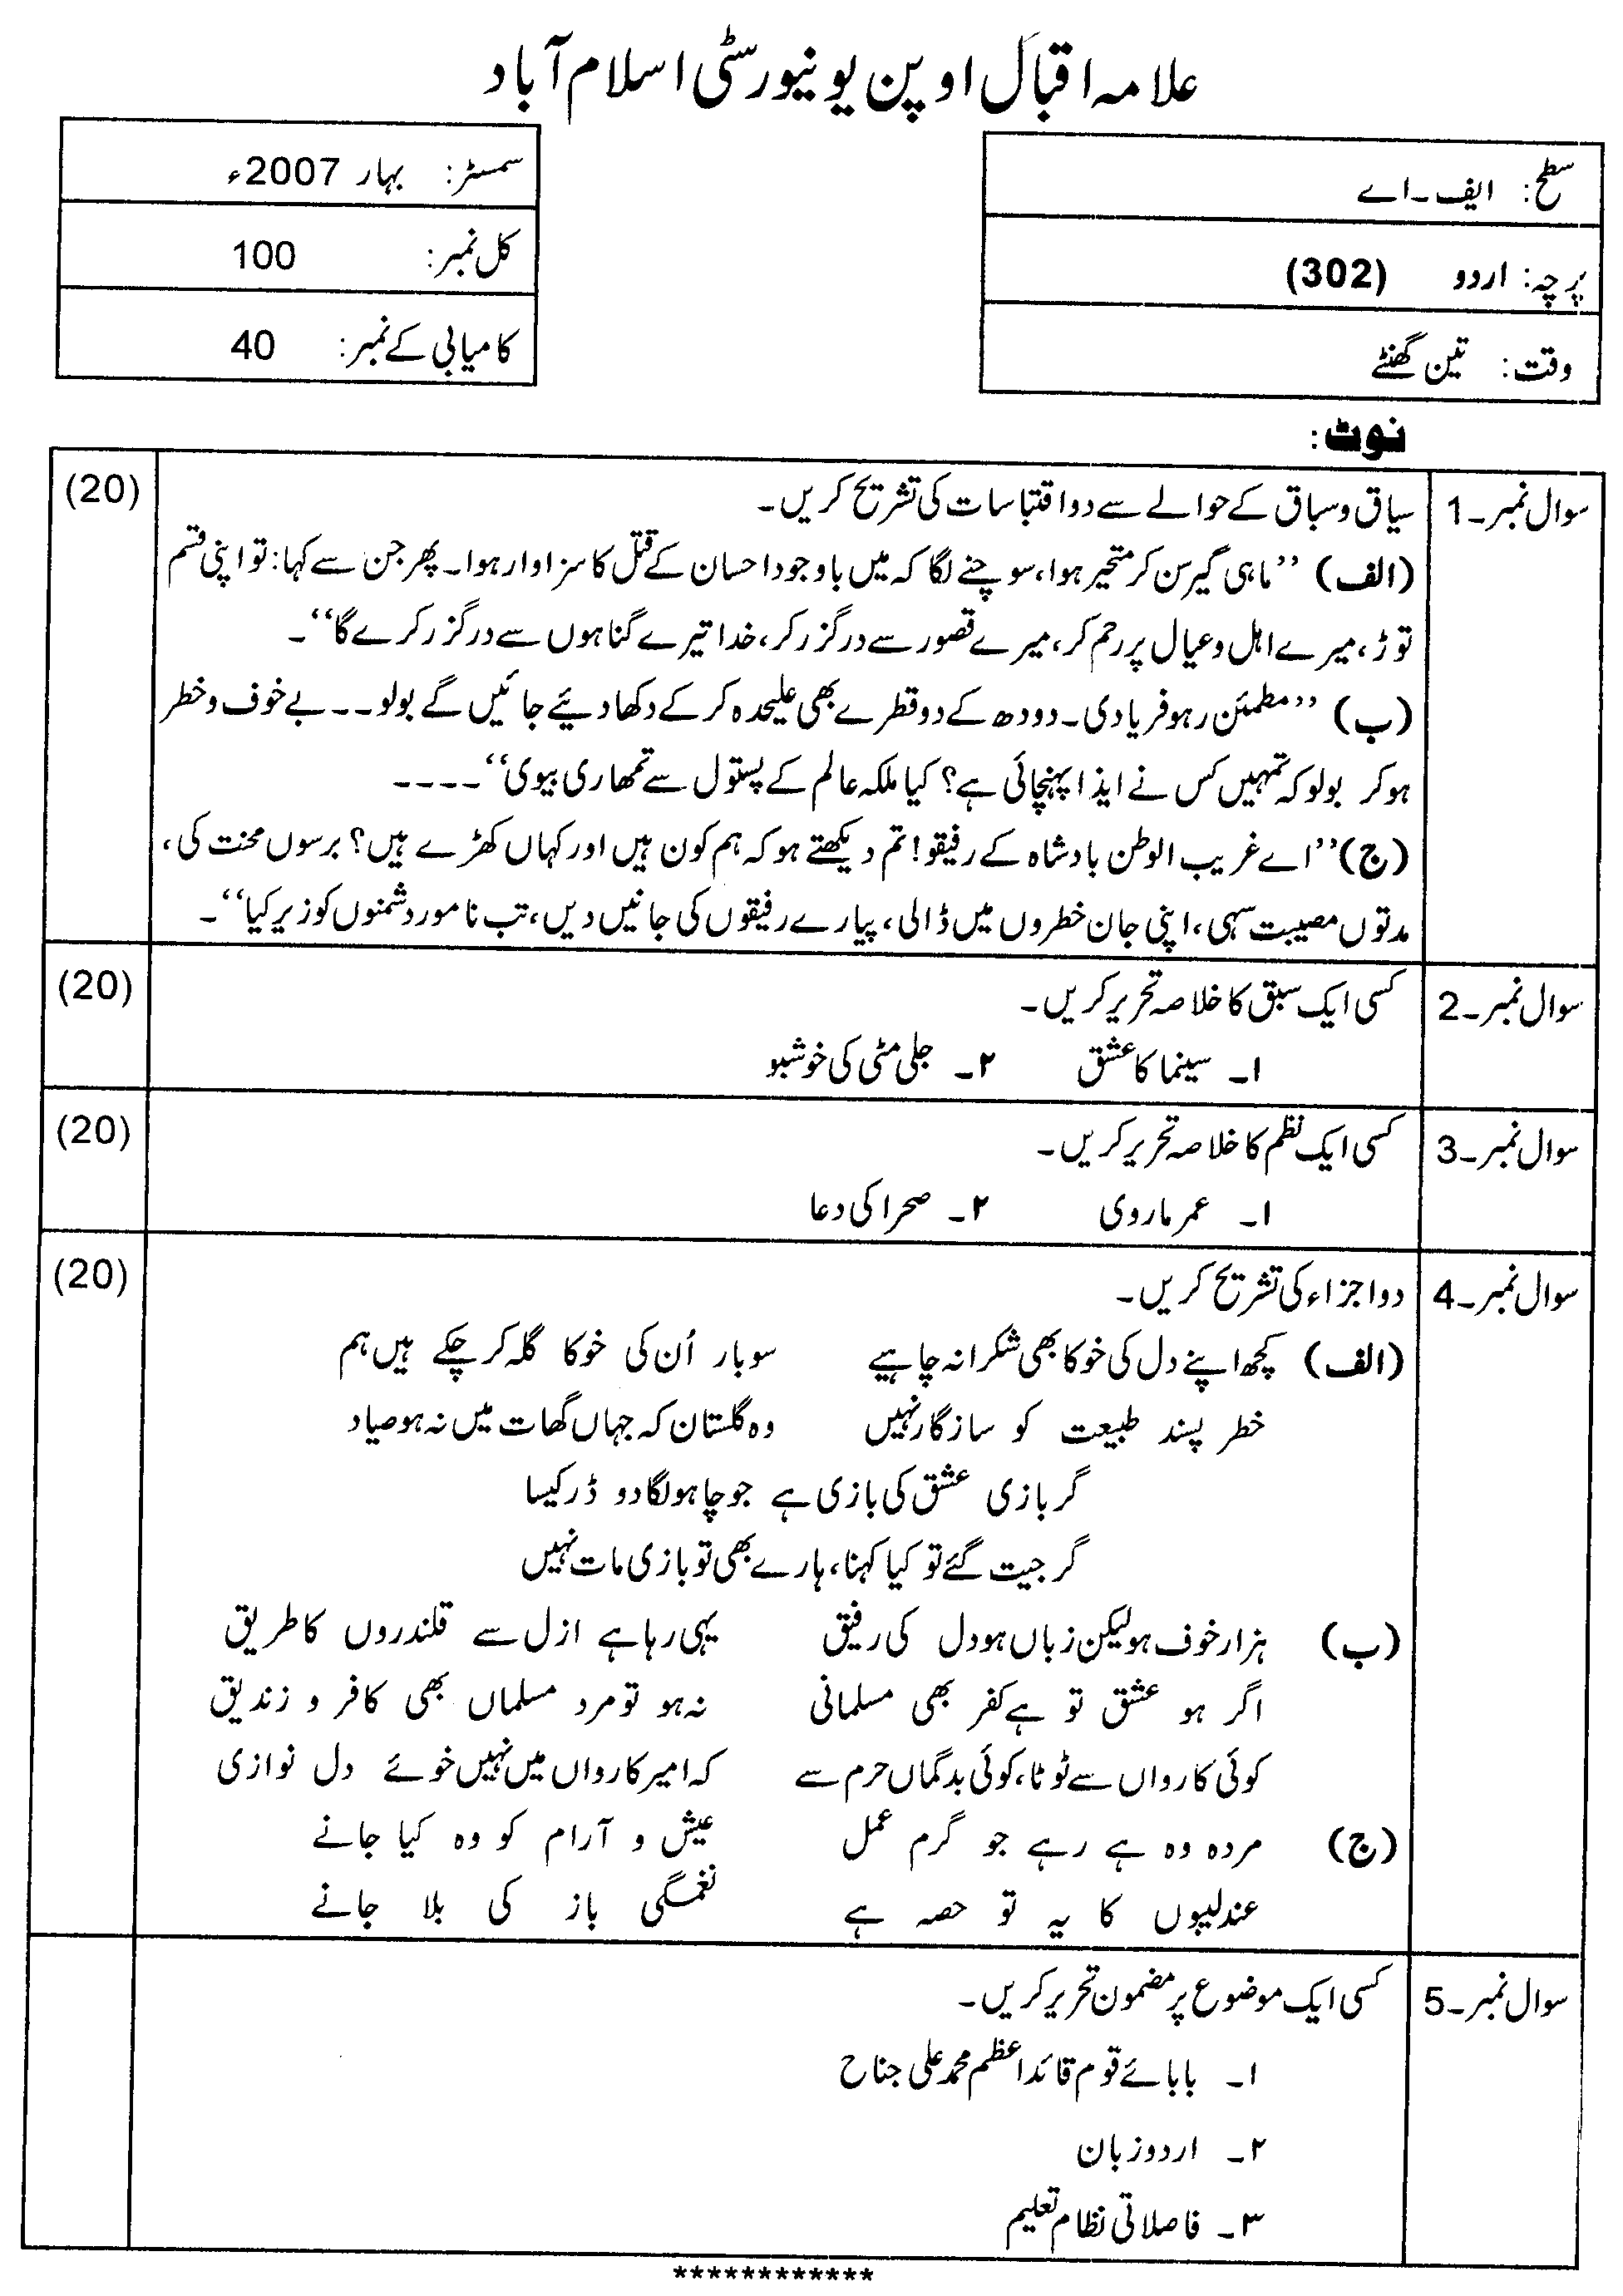 علامہ اقبال اوپن یونیورسٹی اسلام آباد
سطح: ایف۔اے
پرچہ: اردو (302)
وقت: تین گھنٹے
سمسٹر: بہار 2007ء
کل نمبر: 100
کامیابی کے نمبر: 40
نوٹ:
سوال نمبر۔1 سیاق و سباق کے حوالے سے دو اقتباسات کی تشریح کریں۔ (20)
(الف) ’’ماہی گیر سن کر متحیر ہوا، سوچنے لگا کہ میں باوجود احسان کے قتل کا سزاوار ہوا۔ پھر جن سے کہا: تو اپنی قسم
توڑ، میرے اہل و عیال پر رحم کر، میرے قصور سے درگزر کر، خدا تیرے گناہوں سے درگزر کرے گا‘‘۔
(ب) ’’مطمئن رہو فریادی۔ دودھ کے دو قطرے بھی علیحدہ کر کے دکھا دیئے جائیں گے بولو۔۔ بے خوف و خطر
ہو کر بولو کہ تمہیں کس نے ایذا پہنچائی ہے؟ کیا ملکہ عالم کے پستول سے تمھاری بیوی‘‘۔۔۔۔
(ج) ’’اے غریب الوطن بادشاہ کے رفیقو! تم دیکھتے ہو کہ ہم کون ہیں اور کہاں کھڑے ہیں؟ برسوں محنت کی،
مدتوں مصیبت سہی، اپنی جان خطروں میں ڈالی، پیارے رفیقوں کی جانیں دیں، تب نامور دشمنوں کو زیر کیا‘‘۔
سوال نمبر۔2 کسی ایک سبق کا خلاصہ تحریر کریں۔ (20)
۱۔ سینما کا عشق ۲۔ جلی مٹی کی خوشبو
سوال نمبر۔3 کسی ایک نظم کا خلاصہ تحریر کریں۔ (20)
۱۔ عمر ماروی ۲۔ صحرا کی دعا
سوال نمبر۔4 دو اجزاء کی تشریح کریں۔ (20)
(الف) کچھ اپنے دل کی خو کا بھی شکرانہ چاہیے سو بار اُن کی خو کا گلہ کر چکے ہیں ہم
خطر پسند طبیعت کو سازگار نہیں وہ گلستان کہ جہاں گھات میں نہ ہو صیاد
گر بازی عشق کی بازی ہے جو چاہو لگا دو ڈر کیسا
گر جیت گئے تو کیا کہنا، ہارے بھی تو بازی مات نہیں
(ب) ہزار خوف ہو لیکن زباں ہو دل کی رفیق یہی رہا ہے ازل سے قلندروں کا طریق
اگر ہو عشق تو ہے کفر بھی مسلمانی نہ ہو تو مرد مسلماں بھی کافر و زندیق
کوئی کارواں سے ٹوٹا، کوئی بدگماں حرم سے کہ امیر کارواں میں نہیں خوئے دل نوازی
(ج) مردہ وہ ہے رہے جو گرم عمل عیش و آرام کو وہ کیا جانے
عندلیبوں کا یہ تو حصہ ہے نغمگی باز کی بلا جانے
سوال نمبر۔5 کسی ایک موضوع پر مضمون تحریر کریں۔
۱۔ بابائے قوم قائداعظم محمد علی جناح
۲۔ اردو زبان
۳۔ فاصلاتی نظام تعلیم
************